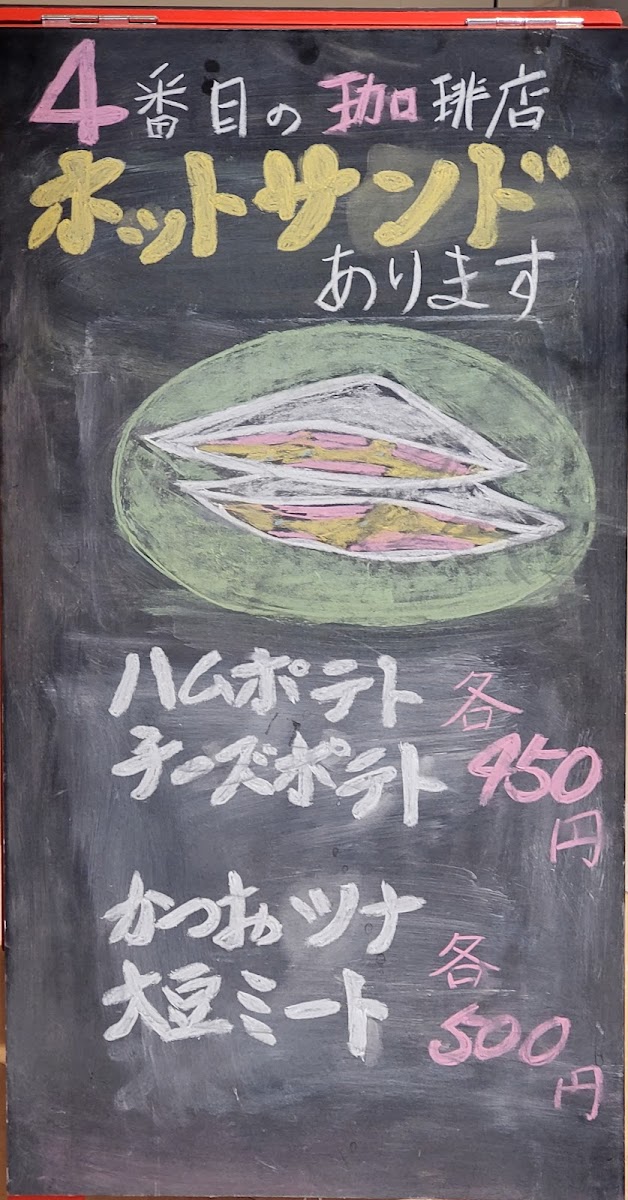 4番目の珈琲店
ホットサンド
あります
ハムポテト
チーズポテト
各
450
円
かつおツナ
大豆ミート
各
500
円